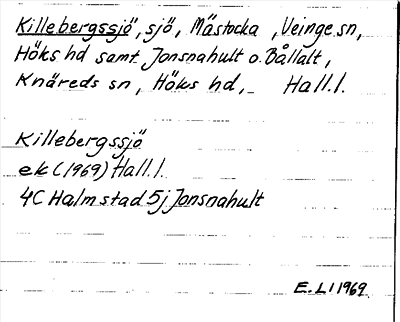 Killebergssjö, sjö, Mästocka, Veinge sn,
Höks hd samt Jonsnahult o. Bållalt,
Knäreds sn, Höks hd, Hall.
Killebergssjö
ek (1969) Hall.
4C Halmstad 5j Jonsnahult
E. L I 1969